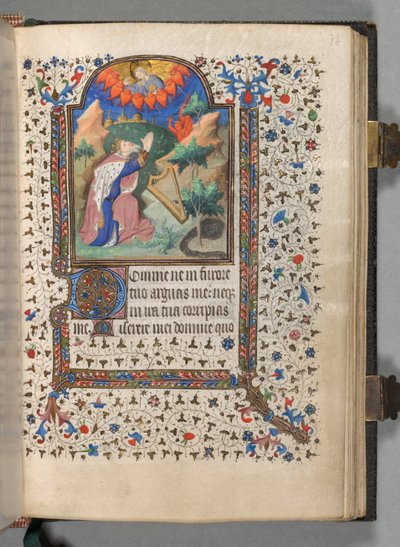 Domine ne in furore
tuo arguas me: neq
in ira tua corripias
me. Miserere mei domine quo